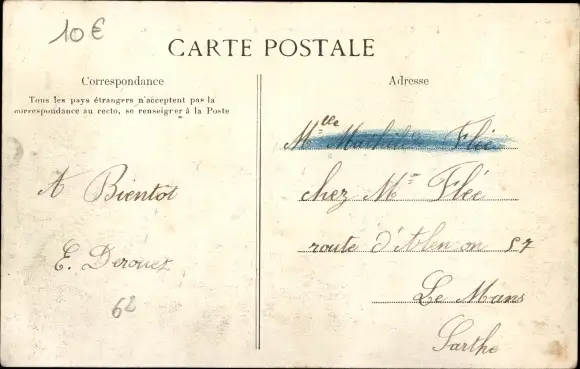 10€
CARTE POSTALE
Correspondance
Tous les pays étrangers n'acceptent pas la
correspondance au recto, se renseigner à la Poste
A Bientot
E. Derouet
62
Adresse
Mlle Mathilde Flée
chez Mr Flée
route d'Alençon 57
Le Mans
Sarthe